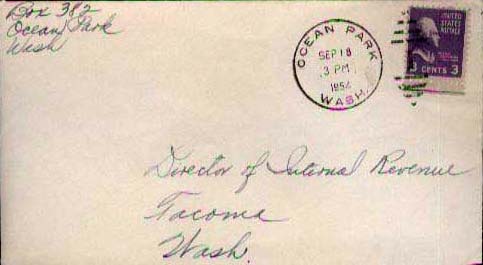 Box 382
Ocean Park
Wash
OCEAN PARK
SEP 18
3 PM
1954
WASH.
UNITED
STATES
POSTAGE
3 CENTS 3
Director of Internal Revenue
Tacoma
Wash.